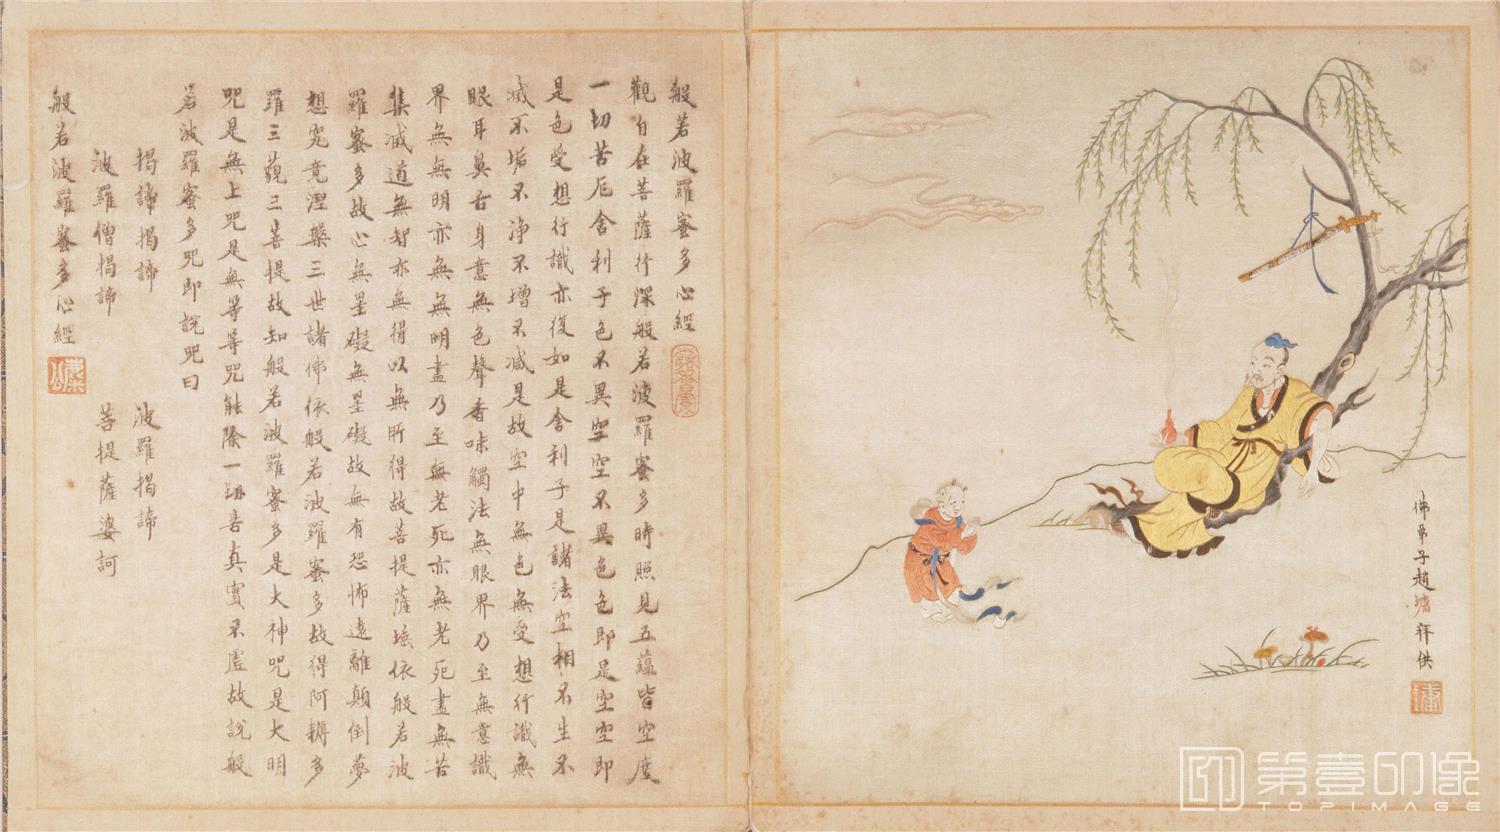 般若波羅蜜多心經
觀自在菩薩行深般若波羅蜜多時照見五蘊皆空度
一切苦厄舍利子色不異空空不異色色即是空空即
是色受想行識亦復如是舍利子是諸法空相不生不
滅不垢不淨不增不減是故空中無色無受想行識無
眼耳鼻舌身意無色聲香味觸法無眼界乃至無意識
界無無明亦無無明盡乃至無老死亦無老死盡無苦
集滅道無智亦無得以無所得故菩提薩埵依般若波
羅蜜多故心無罣礙無罣礙故無有恐怖遠離顛倒夢
想究竟涅槃三世諸佛依般若波羅蜜多故得阿耨多
羅三藐三菩提故知般若波羅蜜多是大神咒是大明
咒是無上咒是無等等咒能除一切苦真實不虛故說般
若波羅蜜多咒即說咒曰
揭諦揭諦 波羅揭諦
波羅僧揭諦 菩提薩婆訶
般若波羅蜜多心經
佛弟子趙墉拜供
第壹印像
TOPIMAGE